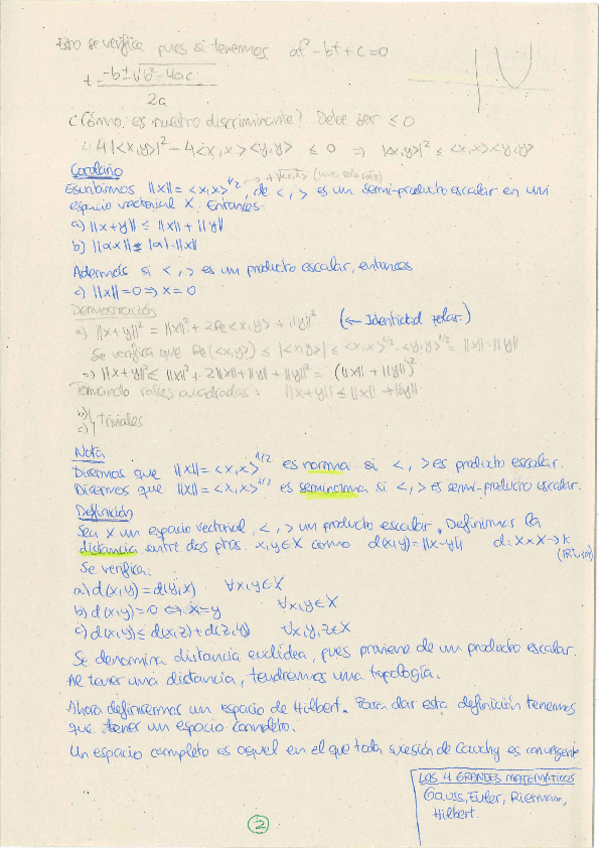 Esto se verifica pues si tenemos at² - bt + c = 0
t = (-b ± √(b² - 4ac)) / 2a
¿Cómo es nuestro discriminante? Debe ser ≤ 0
4|<x,y>|² - 4<x,x><y,y> ≤ 0 ⇒ |<x,y>|² ≤ <x,x><y,y>
Corolario
Escribimos ||x|| = <x,x>^1/2, de < , > es un semi-producto escalar en un
espacio vectorial X. Entonces.
a) ||x+y|| ≤ ||x|| + ||y||
b) ||αx|| = |α|·||x||
Además si < , > es un producto escalar, entonces
c) ||x|| = 0 ⇒ x = 0
Demostración
a) ||x+y||² = ||x||² + 2Re<x,y> + ||y||² (← Identidad polar.)
Se verifica que Re(<x,y>) ≤ |<x,y>| ≤ <x,x>^1/2·<y,y>^1/2 = ||x||·||y||
⇒ ||x+y||² ≤ ||x||² + 2||x||·||y|| + ||y||² = (||x|| + ||y||)²
Tomando raíces cuadradas: ||x+y|| ≤ ||x|| + ||y||.
b)
c) } Triviales
Nota
Diremos que ||x|| = <x,x>^1/2 es norma si < , > es producto escalar.
Diremos que ||x|| = <x,x>^1/2 es seminorma si < , > es semi-producto escalar.
Definición
Sea X un espacio vectorial, < , > un producto escalar. Definimos la
distancia entre dos ptos. x,y∈X como d(x,y) = ||x-y|| d: X×X→K
Se verifica:
a) d(x,y) = d(y,x) ∀x,y∈X
b) d(x,y) = 0 ⇔ x = y ∀x,y∈X
c) d(x,y) ≤ d(x,z) + d(z,y) ∀x,y,z∈X
Se denomina distancia euclídea, pues proviene de un producto escalar.
Al tener una distancia, tendremos una topología.
Ahora definiremos un espacio de Hilbert. Para dar esta definición tenemos
que tener un espacio completo.
Un espacio completo es aquel en el que toda sucesión de Cauchy es convergente
LOS 4 GRANDES MATEMÁTICOS
Gauss, Euler, Riemann,
Hilbert.
2